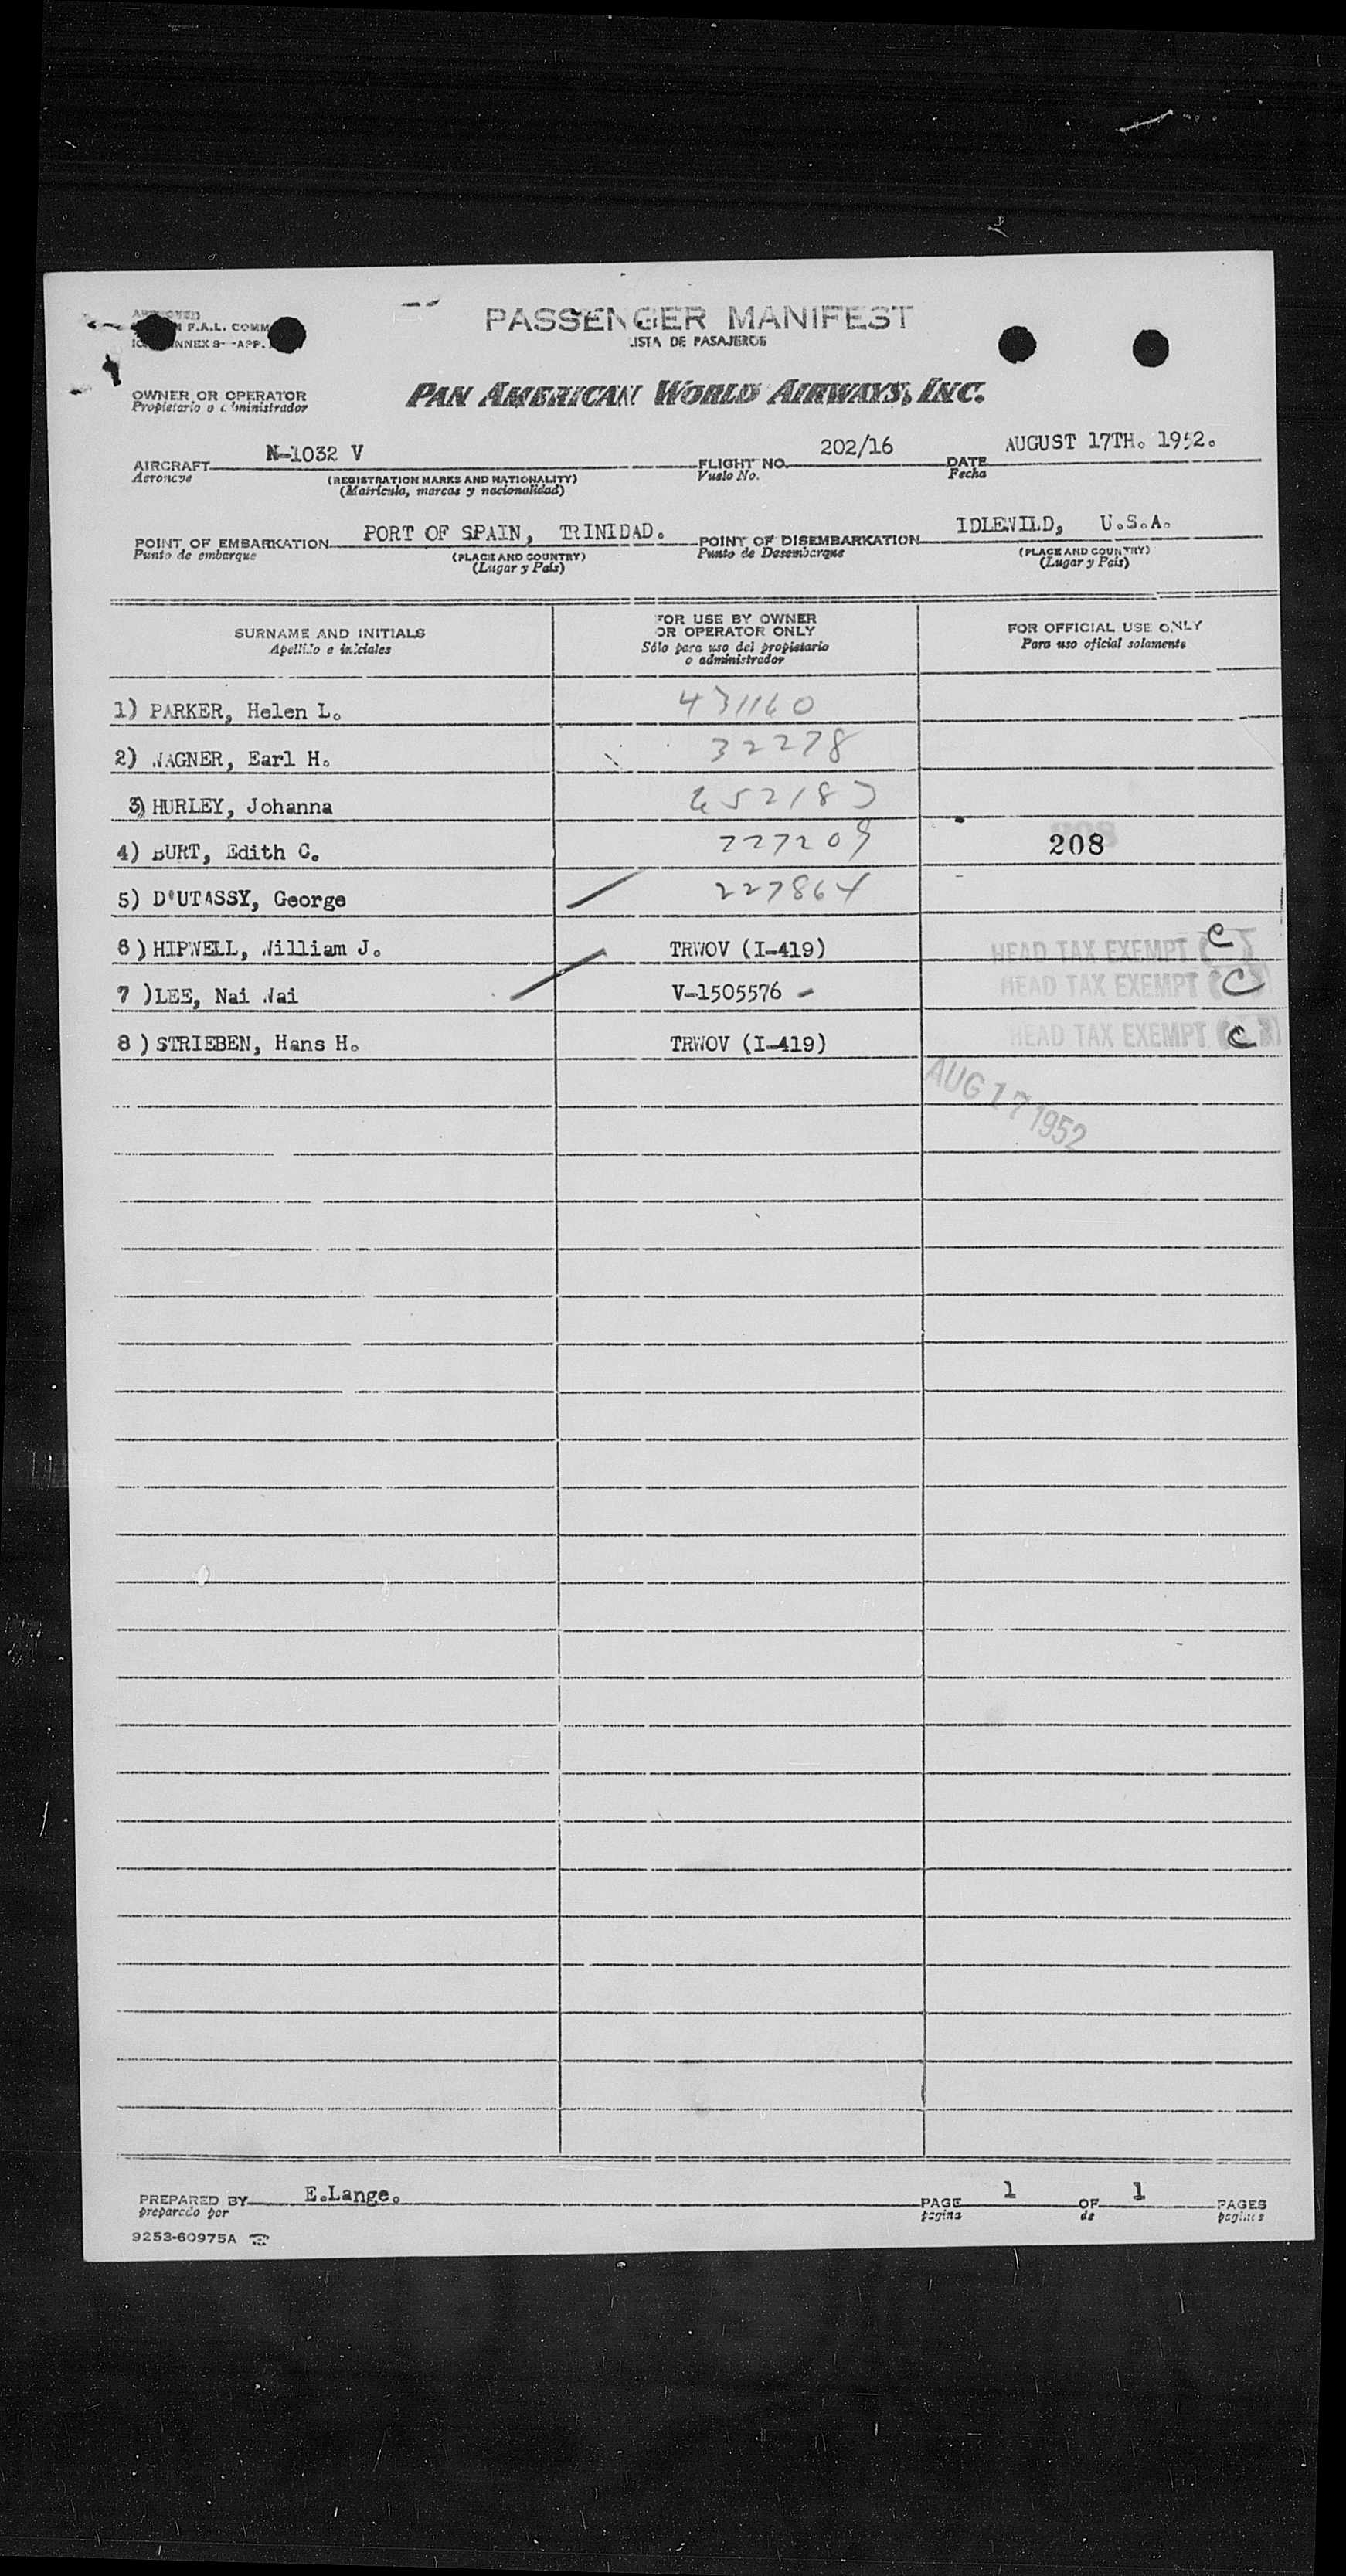 PASSENGER MANIFEST
LISTA DE PASAJEROS
F.A.L. COMM
OWNER OR OPERATOR
PAN AMERICAN WORLD AIRWAYS, INC.
Propietario o administrador
AIRCRAFT N-1032 V FLIGHT NO. 202/16 DATE AUGUST 17TH. 1952.
Aeronave (REGISTRATION MARKS AND NATIONALITY) Vuelo No. Fecha
(Matricula, marcas y nacionalidad)
POINT OF EMBARKATION PORT OF SPAIN, TRINIDAD. POINT OF DISEMBARKATION IDLEWILD, U.S.A.
Punto de embarque (PLACE AND COUNTRY) Punto de Desembarque (PLACE AND COUNTRY)
(Lugar y País) (Lugar y País)
SURNAME AND INITIALS
Apellido e iniciales
FOR USE BY OWNER
OR OPERATOR ONLY
Sólo para uso del propietario
o administrador
FOR OFFICIAL USE ONLY
Para uso oficial solamente
1) PARKER, Helen L. 431160
2) WAGNER, Earl H. 32278
3) HURLEY, Johanna
4) BURT, Edith C. 227209 208
5) D'UTASSY, George 227864
6) HIPWELL, William J. TRWOV (I-419) HEAD TAX EXEMPT C
7) LEE, Nai Wai V-1505576 HEAD TAX EXEMPT C
8) STRIEBEN, Hans H. TRWOV (I-419) HEAD TAX EXEMPT C
AUG 17 1952
PREPARED BY E.Lange. PAGE 1 OF 1 PAGES
preparado por pagina de paginas
9253-60975A